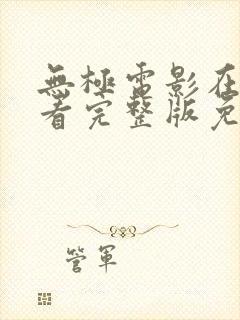 無極電影在
看完整版免
管軍